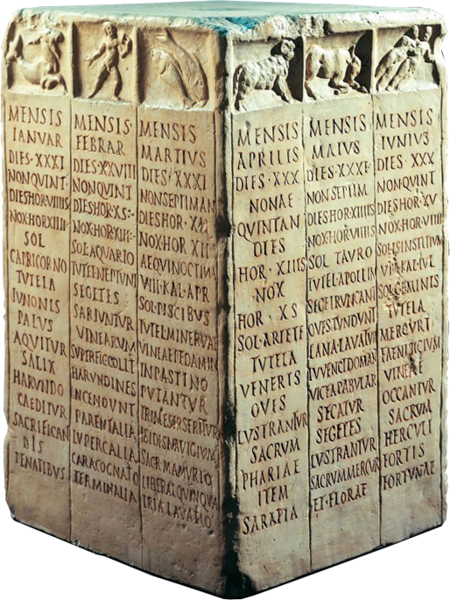 MENSIS
IANVAR
DIES·XXXI
NON·QVINT
DIES·HOR·VIIII
NOX·HOR·XIIII
SOL
CAPRICORNO
TVTELA
IVNONIS
PALVS
AQVITVR
SALIX
HARVNDO
CAEDITVR
SACRIFICAN
DIS
PENATIBVS
MENSIS·
FEBRAR
DIES·XXVIII
NON·QVINT
DIES·HOR·XS·
NOX·HOR·XIII·
SOL·AQVARIO
TVTEL·NEPTVNI
SEGETES
SARIVNTVR
VINEARVM
SVPERFIC·COLIT
HARVNDINES
INCENDVNT
PARENTALIA
LVPERCALIA
CARA·COGNATIO
TERMINALIA
MENSIS
MARTIVS
DIES·XXXI
NON·SEPTIMAN
DIES·HOR·XII
NOX·HOR·XII
AEQVINOCTIVM
VIII·KAL·APR
SOL·PISCIBVS
TVTEL·MINERVAE
VINEAE·PEDAMIN
IN·PASTINO
PVTANTVR
TRIMESTR·SERITVR
ISIDIS·NAVIGIVM
SACR·MAMVRIO
LIBERAL·QVINQVA
TRIA·LAVATIO
MENSIS
APRILIS
DIES·XXX
NONAE
QVINTAN
DIES
HOR·XIIIS
NOX
HOR·XS
SOL·ARIETE
TVTELA
VENERIS
OVES
LVSTRANTVR
SACRVM
PHARIAE
ITEM
SARAPIA
MENSIS
MAIVS
DIES·XXXI·
NON·SEPTIM
DIES·HOR·XIIIIS
NOX·HOR·VIIIIS
SOL·TAVRO
TVTEL·APOLLIN
SEGET·RVNCANT
OVES·TVNDVNT
LANA·LAVATVR
IVVENCI·DOMANT
VICIA·PABVLAR
SECATVR
SEGETES
LVSTRANTVR
SACRVM·MERCVR
ET·FLORAE
MENSIS
IVNIVS
DIES·XXX
NON·QVINT
DIES·HOR·XV
NOX·HOR·VIIII
SOLIS·INSTITIVM
VIII·KAL·IVL
SOL·GEMINIS
TVTELA
MERCVRI
FAENISICIVM
VINEAE
OCCANTVR
SACRVM
HERCVLI
FORTIS
FORTVNAE